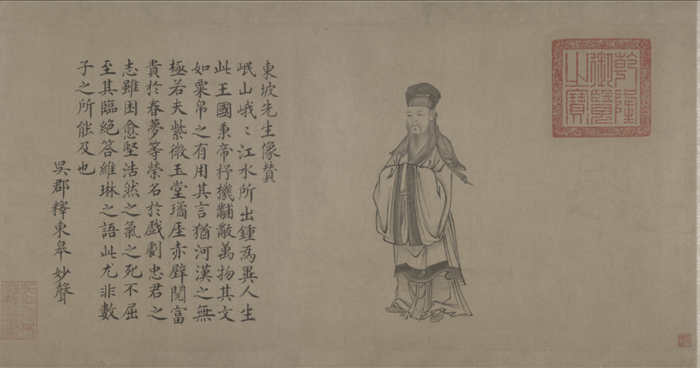 東坡先生像贊
岷山峨〻江水所出鍾為異人生
此王國秉帝杼機黼黻萬物其文
如粟帛之有用其言猶河漢之無
極若夫紫微玉堂璚厓赤壁閱富
貴於春夢等榮名於戲劇忠君之
志雖困愈堅浩然之氣之死不屈
至其臨絕答維琳之語此尤非數
子之所能及也
吳郡釋東皋妙聲
乾隆御覽之寶